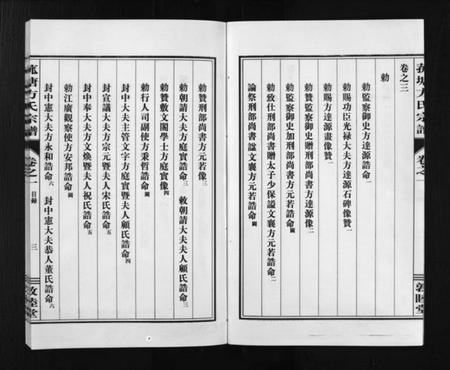 菰塘方氏宗譜
卷之一
敦睦堂
卷之三
勅
勅監察御史方達源誥命一
勅賜功臣光祿大夫方達源石碑像贊一
勅賜方達源畫像贊一
勅贊監察御史贈刑部尚書方達源像二
勅監察御史加贈刑部尚書方達源誥命二
勅致仕刑部尚書贈太子少保謚文襄方元若誥命二
諭祭刑部尚書謚文襄方元若誥命
勅贊刑部尚書方元若像三
勅朝請大夫方庭實誥命三 敕朝請大夫夫人顧氏誥命三
勅贊敷文閣學士方庭實像四
勅行人司副使方秉哲誥命
封中大夫主管文字方庭實暨夫人顧氏誥命四
封宣議大夫方宗元暨夫人宋氏誥命五
封中奉大夫方文煥暨夫人祝氏誥命五
勅江廣觀察使方安邦誥命
封中憲大夫方永和誥命六 封中憲大夫恭人董氏誥命六
菰塘方氏宗譜
卷之一
目錄
三
敦睦堂